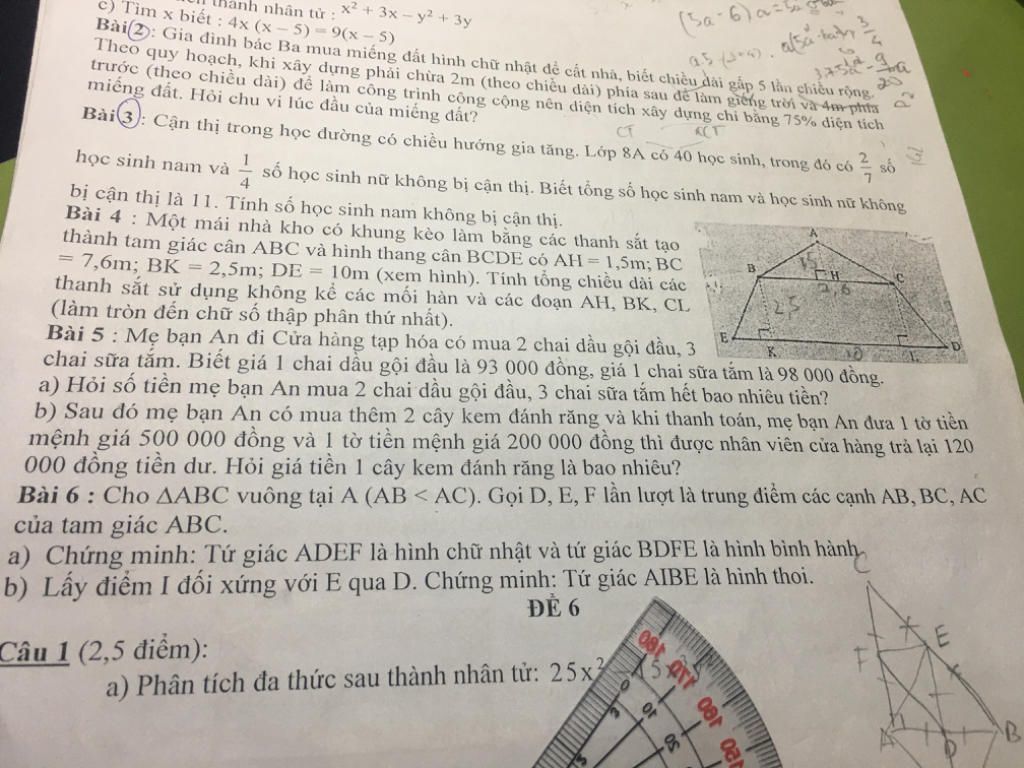 thành nhân tử : x² + 3x − y² + 3y
c) Tìm x biết : 4x (x − 5) = 9(x − 5)
Bài 2: Gia đình bác Ba mua miếng đất hình chữ nhật để cất nhà, biết chiều dài gấp 5 lần chiều rộng.
Theo quy hoạch, khi xây dựng phải chừa 2m (theo chiều dài) phía sau để làm giếng trời và 4m phía
trước (theo chiều dài) để làm công trình công cộng nên diện tích xây dựng chỉ bằng 75% diện tích
miếng đất. Hỏi chu vi lúc đầu của miếng đất?
Bài 3: Cận thị trong học đường có chiều hướng gia tăng. Lớp 8A có 40 học sinh, trong đó có 2/7 số
học sinh nam và 1/4 số học sinh nữ không bị cận thị. Biết tổng số học sinh nam và học sinh nữ không
bị cận thị là 11. Tính số học sinh nam không bị cận thị.
Bài 4 : Một mái nhà kho có khung kèo làm bằng các thanh sắt tạo
thành tam giác cân ABC và hình thang cân BCDE có AH = 1,5m; BC
= 7,6m; BK = 2,5m; DE = 10m (xem hình). Tính tổng chiều dài các
thanh sắt sử dụng không kể các mối hàn và các đoạn AH, BK, CL
(làm tròn đến chữ số thập phân thứ nhất).
A
B
H
C
2,5
E
K
10
L
D
Bài 5 : Mẹ bạn An đi Cửa hàng tạp hóa có mua 2 chai dầu gội đầu, 3
chai sữa tắm. Biết giá 1 chai dầu gội đầu là 93 000 đồng, giá 1 chai sữa tắm là 98 000 đồng.
a) Hỏi số tiền mẹ bạn An mua 2 chai dầu gội đầu, 3 chai sữa tắm hết bao nhiêu tiền?
b) Sau đó mẹ bạn An có mua thêm 2 cây kem đánh răng và khi thanh toán, mẹ bạn An đưa 1 tờ tiền
mệnh giá 500 000 đồng và 1 tờ tiền mệnh giá 200 000 đồng thì được nhân viên cửa hàng trả lại 120
000 đồng tiền dư. Hỏi giá tiền 1 cây kem đánh răng là bao nhiêu?
Bài 6 : Cho ΔABC vuông tại A (AB < AC). Gọi D, E, F lần lượt là trung điểm các cạnh AB, BC, AC
của tam giác ABC.
a) Chứng minh: Tứ giác ADEF là hình chữ nhật và tứ giác BDFE là hình bình hành
b) Lấy điểm I đối xứng với E qua D. Chứng minh: Tứ giác AIBE là hình thoi.
C
E
F
A
D
B
ĐỀ 6
Câu 1 (2,5 điểm):
a) Phân tích đa thức sau thành nhân tử: 25x²
180 170 160 150
0 10 20